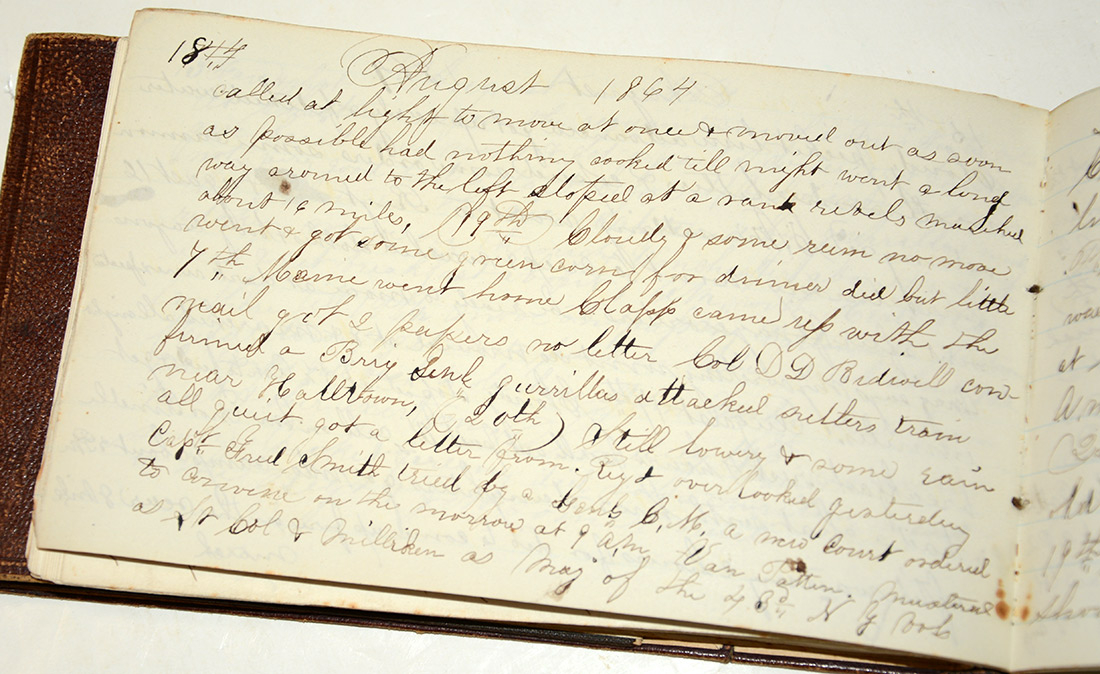 August 1864
18th
called at light to move at once & moved out as soon
as possible had nothing cooked till night went a long
way around to the left stoped at a rebels marched
about 16 miles, (19th) Cloudy & some rain no move
went & got some green corn for dinner did but little
7th Maine went home Clapp came up with the
mail got 2 papers no letter Col D D Bidwell con-
firmed a Brig Genl gurrillas attacked sutlers train
near Halltown, (20th) Still lowery & some rain
all quiet got a letter from. Regt overlooked yesterday
Capt Fred Smith tried by a Genl C. M, a new court ordered
to convine on the morrow at 9 a,m Van Patten. mustered
as Lt Col & Milliken as Maj of the 43d N Y Vols
at
19th